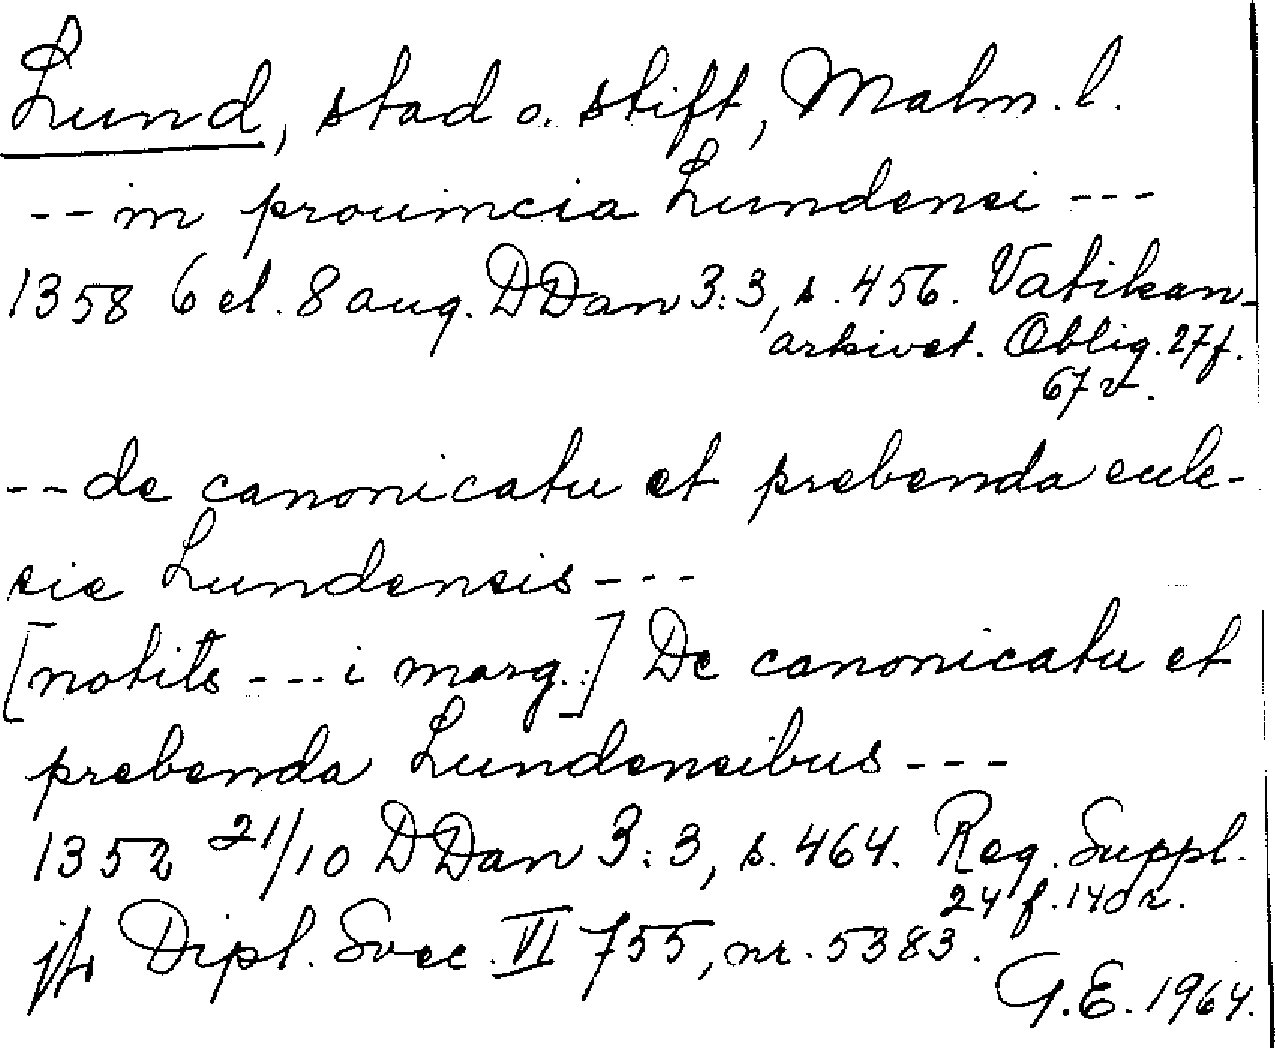 Lund, stad o. stift, Malm. l.
-- in prouincia Lundensi ---
1358 6 el. 8 aug. DDan 3:3, s. 456. Vatikan-
arkivet. Oblig. 27 f.
67 v.
-- de canonicatu et prebenda eccle-
sie Lundensis ---
[notits --- i marg.:] De canonicatu et
prebenda Lundensibus ---
1352 21/10 DDan 3:3, s. 464. Reg. Suppl.
24 f. 140 r.
jfr Dipl. Svec. VI 755, nr. 5383.
G.E. 1964.